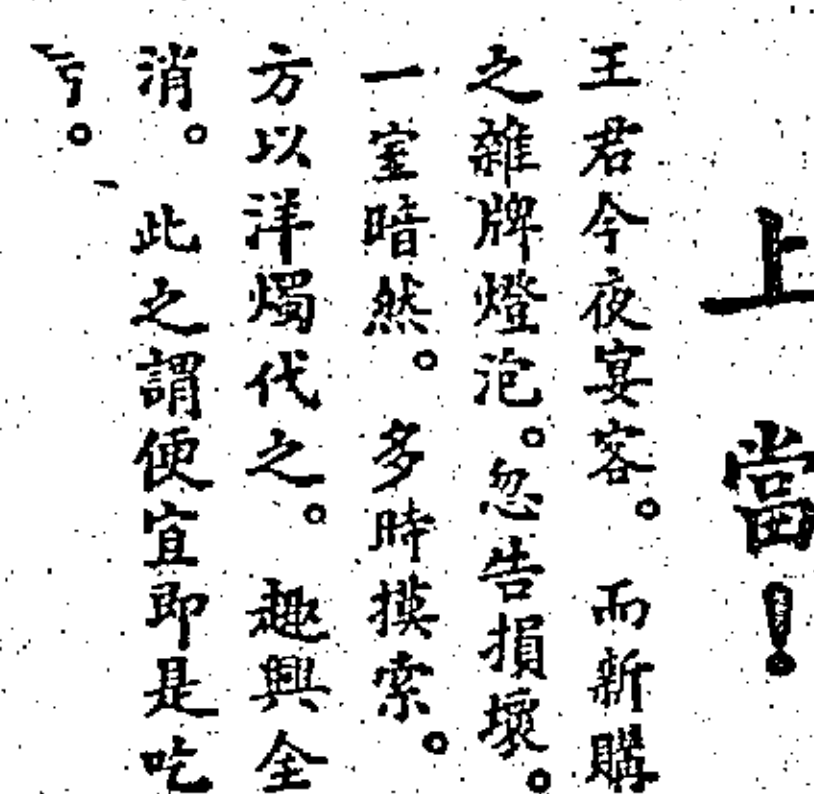 上當！
王君今夜宴客。而新購
之雜牌燈泡。忽告損壞。
一室暗然。多時摸索。
方以洋燭代之。趣興全
消。此之謂便宜即是吃
亏。